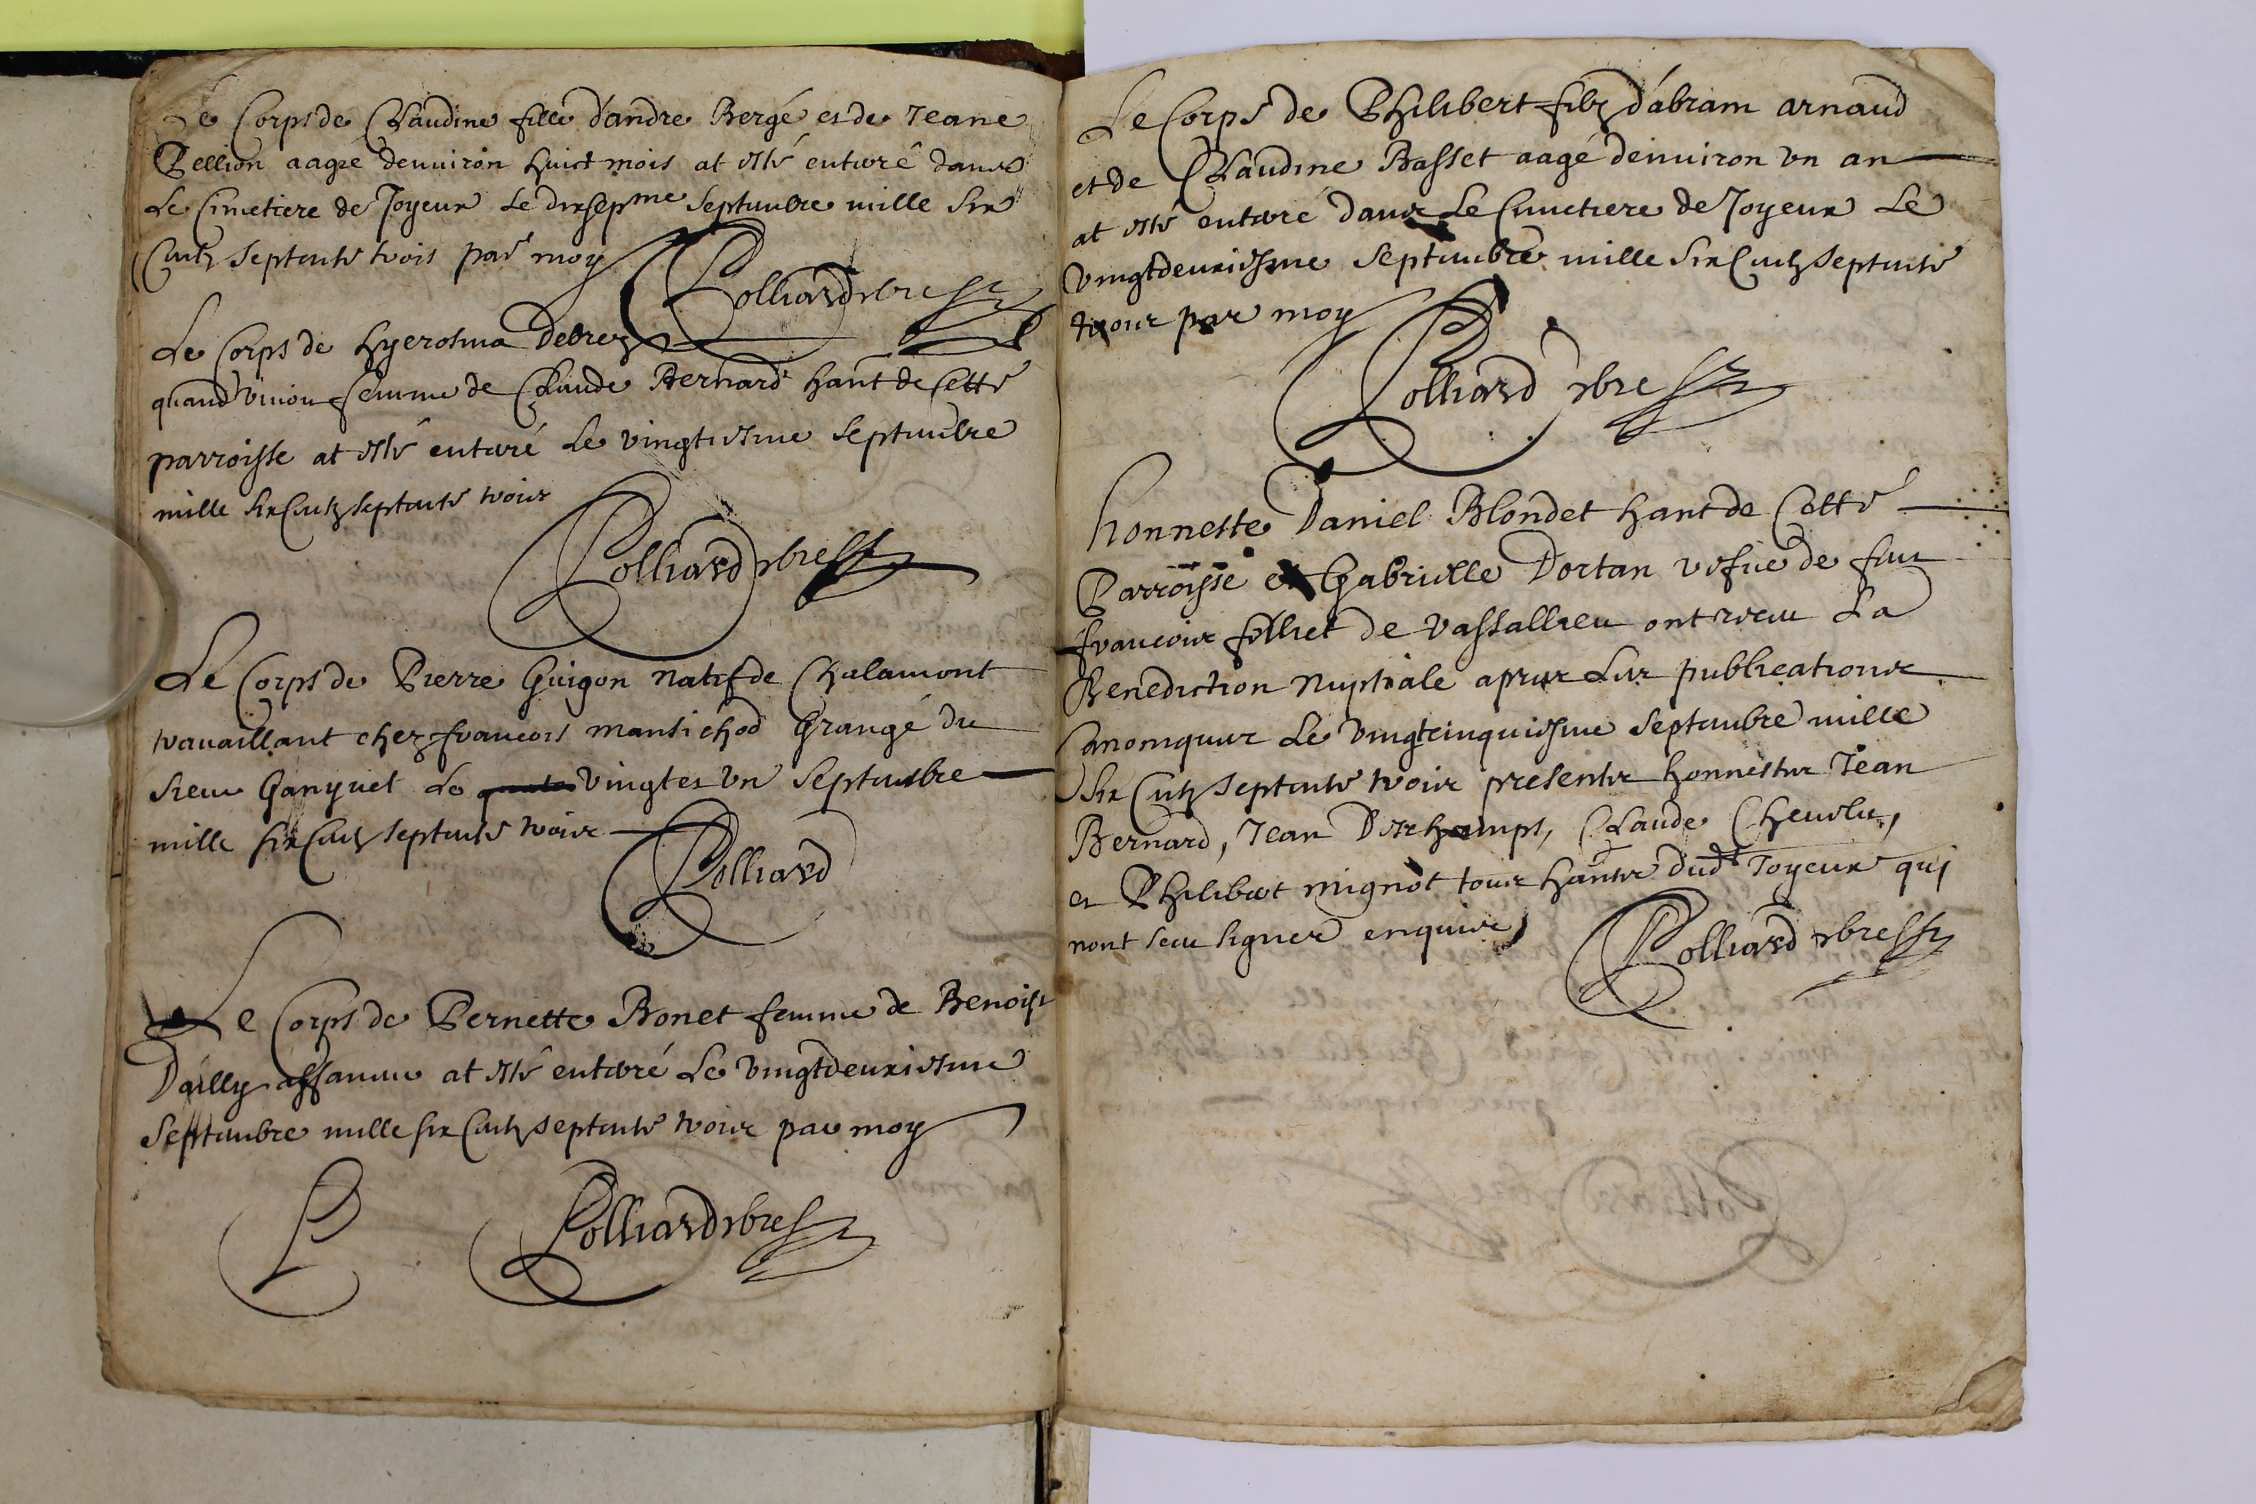 Le Corps de Claudine fille d'andre Bergé et de Jeane
Pellion aagée denuiron huict mois at esté enterré dans
Le Cimetiere de Joyeux Le dixsepme septembre mille six
Centz septente trois par moy
Polliard vbre
Le Corps de hyerosma Debrez
quand viuoit femme de Claude Bernard hant de Cette
parroisse at esté enterré Le vingtiesme septembre
mille six Centz septente trois
Polliard vbre
Le Corps de Pierre Guigon natif de Chalamont
travaillant chez francois mantichod Grangé du
sieur Ganyuet Le vingt et vn septembre
mille six Centz septente trois
Polliard
Le Corps de Pernette Bonet femme de Benoist
Dailly at esté enterré Le vingtdeuxiesme
Septembre mille six Centz septente trois par moy
P Polliard vbre
Le Corps de Philibert filz d'abram arnaud
et de Claudine Basset aagé denuiron vn an
at esté enterré dans Le Cimetiere de Joyeux Le
vingtdeuxiesme septembre mille six Centz septente
trois par moy
Polliard vbre
honneste Daniel Blondet hant de Cette
Parroisse et Gabrielle Dortan vefue de feu
francois folliet de vassallieu ont receu La
Benediction nuptiale apres Les publications
Canonques Le vingtcinquiesme septembre mille
six Centz septente trois presents honnestes Jean
Bernard, Jean Deschamps, Claude Cheuolu,
et Philibert mignot tous hants dud Joyeux qui
nont sceu signer enquis
Polliard vbre